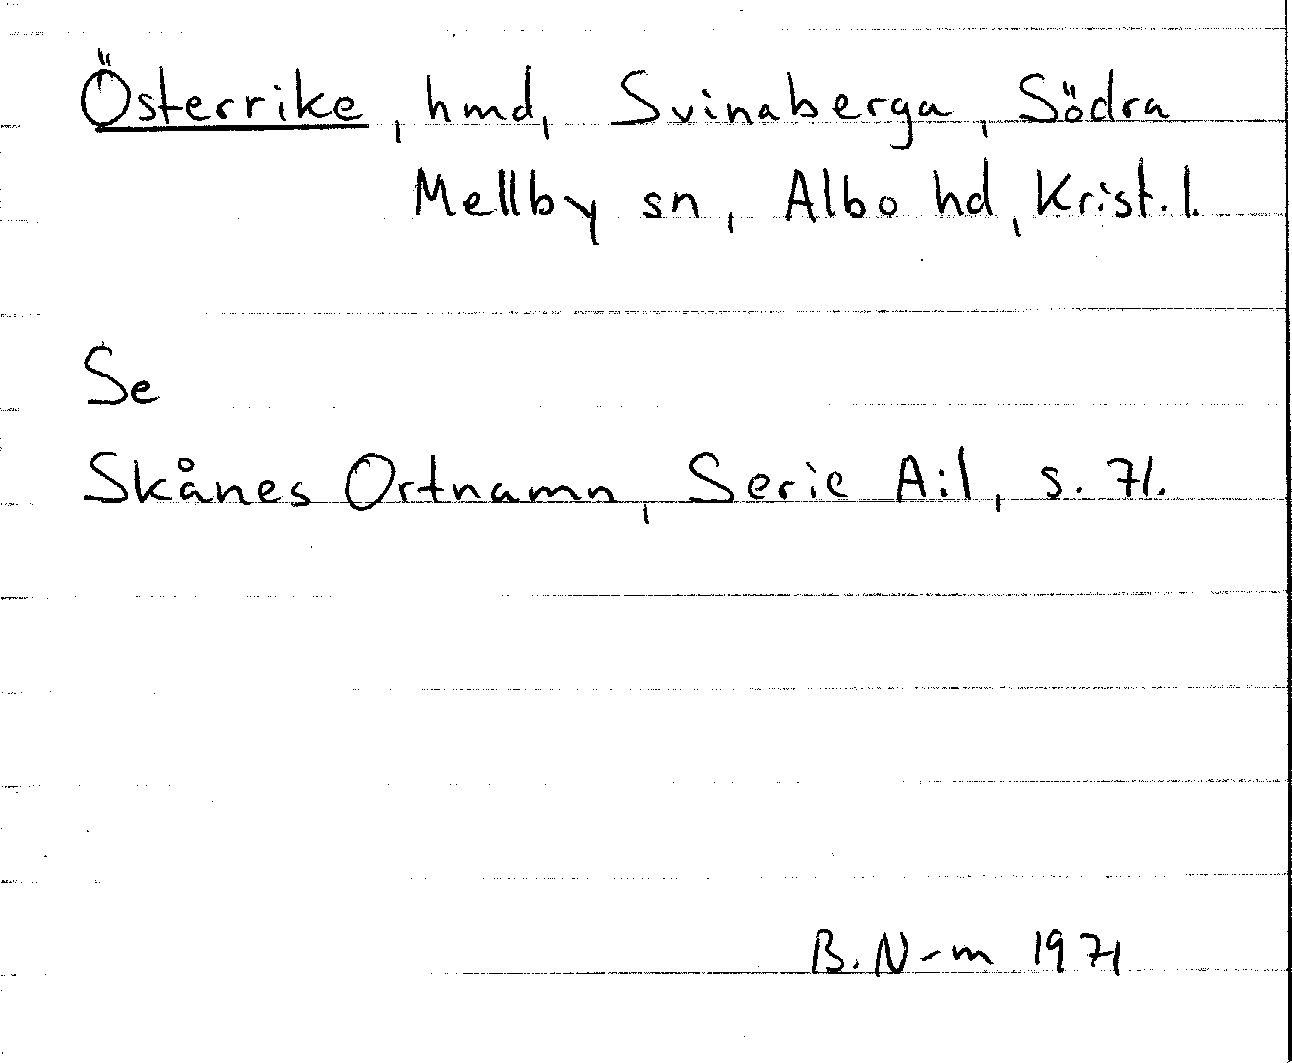 Österrike, hmd, Svinaberga, Södra
Mellby sn, Albo hd, Krist. l.
Se
Skånes Ortnamn, Serie A:1, s. 71.
B. N-m 1971